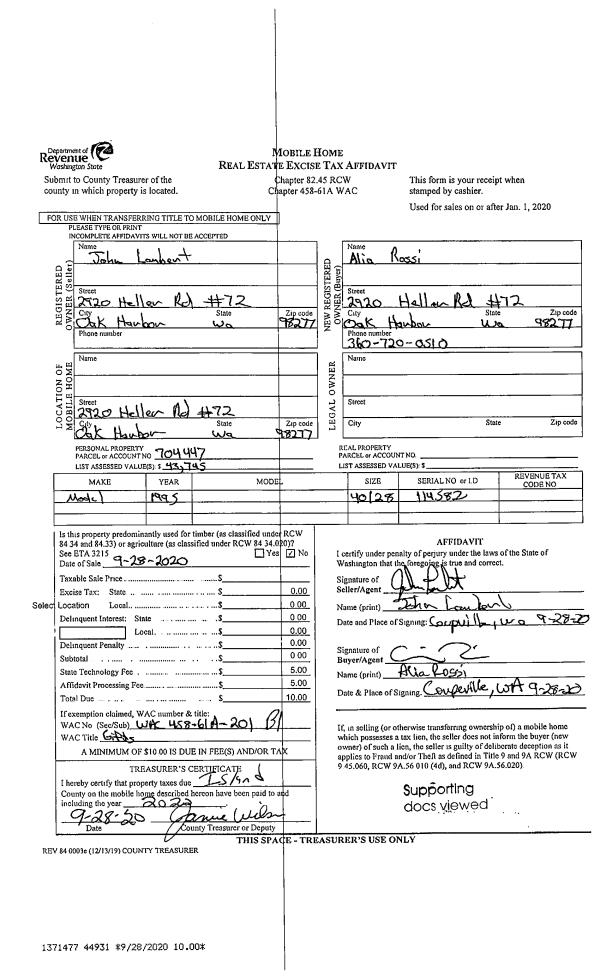 Department of
Revenue
Washington State
Submit to County Treasurer of the
county in which property is located.
MOBILE HOME
REAL ESTATE EXCISE TAX AFFIDAVIT
Chapter 82.45 RCW
Chapter 458-61A WAC
This form is your receipt when
stamped by cashier.
Used for sales on or after Jan. 1, 2020
FOR USE WHEN TRANSFERRING TITLE TO MOBILE HOME ONLY
PLEASE TYPE OR PRINT
INCOMPLETE AFFIDAVITS WILL NOT BE ACCEPTED
REGISTERED
OWNER (Seller)
Name
John Lambert
Street
2920 Heller Rd #72
City State Zip code
Oak Harbor Wa 98277
Phone number
NEW REGISTERED
OWNER (Buyer)
Name
Alia Rossi
Street
2920 Heller Rd #72
City State Zip code
Oak Harbor Wa 98277
Phone number
360-720-0510
LOCATION OF
MOBILE HOME
Name
Street
2920 Heller Rd #72
City State Zip code
Oak Harbor Wa 98277
LEGAL OWNER
Name
Street
City State Zip code
PERSONAL PROPERTY
PARCEL or ACCOUNT NO 704447
LIST ASSESSED VALUE(S): $ 43,745
REAL PROPERTY
PARCEL or ACCOUNT NO.
LIST ASSESSED VALUE(S): $
MAKE YEAR MODEL SIZE SERIAL NO or I.D REVENUE TAX CODE NO
Model 1995 40/28 114582
Is this property predominantly used for timber (as classified under RCW
84 34 and 84.33) or agriculture (as classified under RCW 84 34.020)?
See ETA 3215 Yes ✓ No
Date of Sale 9-28-2020
Taxable Sale Price $
Excise Tax: State $ 0.00
Select Location Local $ 0.00
Delinquent Interest: State $ 0.00
Local $ 0.00
Delinquent Penalty $ 0.00
Subtotal $ 0 00
State Technology Fee $ 5.00
Affidavit Processing Fee $ 5.00
Total Due $ 10.00
If exemption claimed, WAC number & title:
WAC No (Sec/Sub) WAC 458-61A-201
WAC Title
A MINIMUM OF $10.00 IS DUE IN FEE(S) AND/OR TAX
AFFIDAVIT
I certify under penalty of perjury under the laws of the State of
Washington that the foregoing is true and correct.
Signature of
Seller/Agent
Name (print) John Lambert
Date and Place of Signing: Coupeville, wa 9-28-20
Signature of
Buyer/Agent
Name (print) Alia Rossi
Date & Place of Signing. Coupeville, WA 9-28-20
If, in selling (or otherwise transferring ownership of) a mobile home
which possesses a tax lien, the seller does not inform the buyer (new
owner) of such a lien, the seller is guilty of deliberate deception as it
applies to Fraud and/or Theft as defined in Title 9 and 9A RCW (RCW
9 45.060, RCW 9A.56 010 (4d), and RCW 9A.56.020).
TREASURER'S CERTIFICATE
I hereby certify that property taxes due Island
County on the mobile home described hereon have been paid to and
including the year 2020
9-28-20
Date County Treasurer or Deputy
Supporting
docs viewed
THIS SPACE - TREASURER'S USE ONLY
REV 84 0003e (12/13/19) COUNTY TREASURER
1371477 44931 *9/28/2020 10.00*